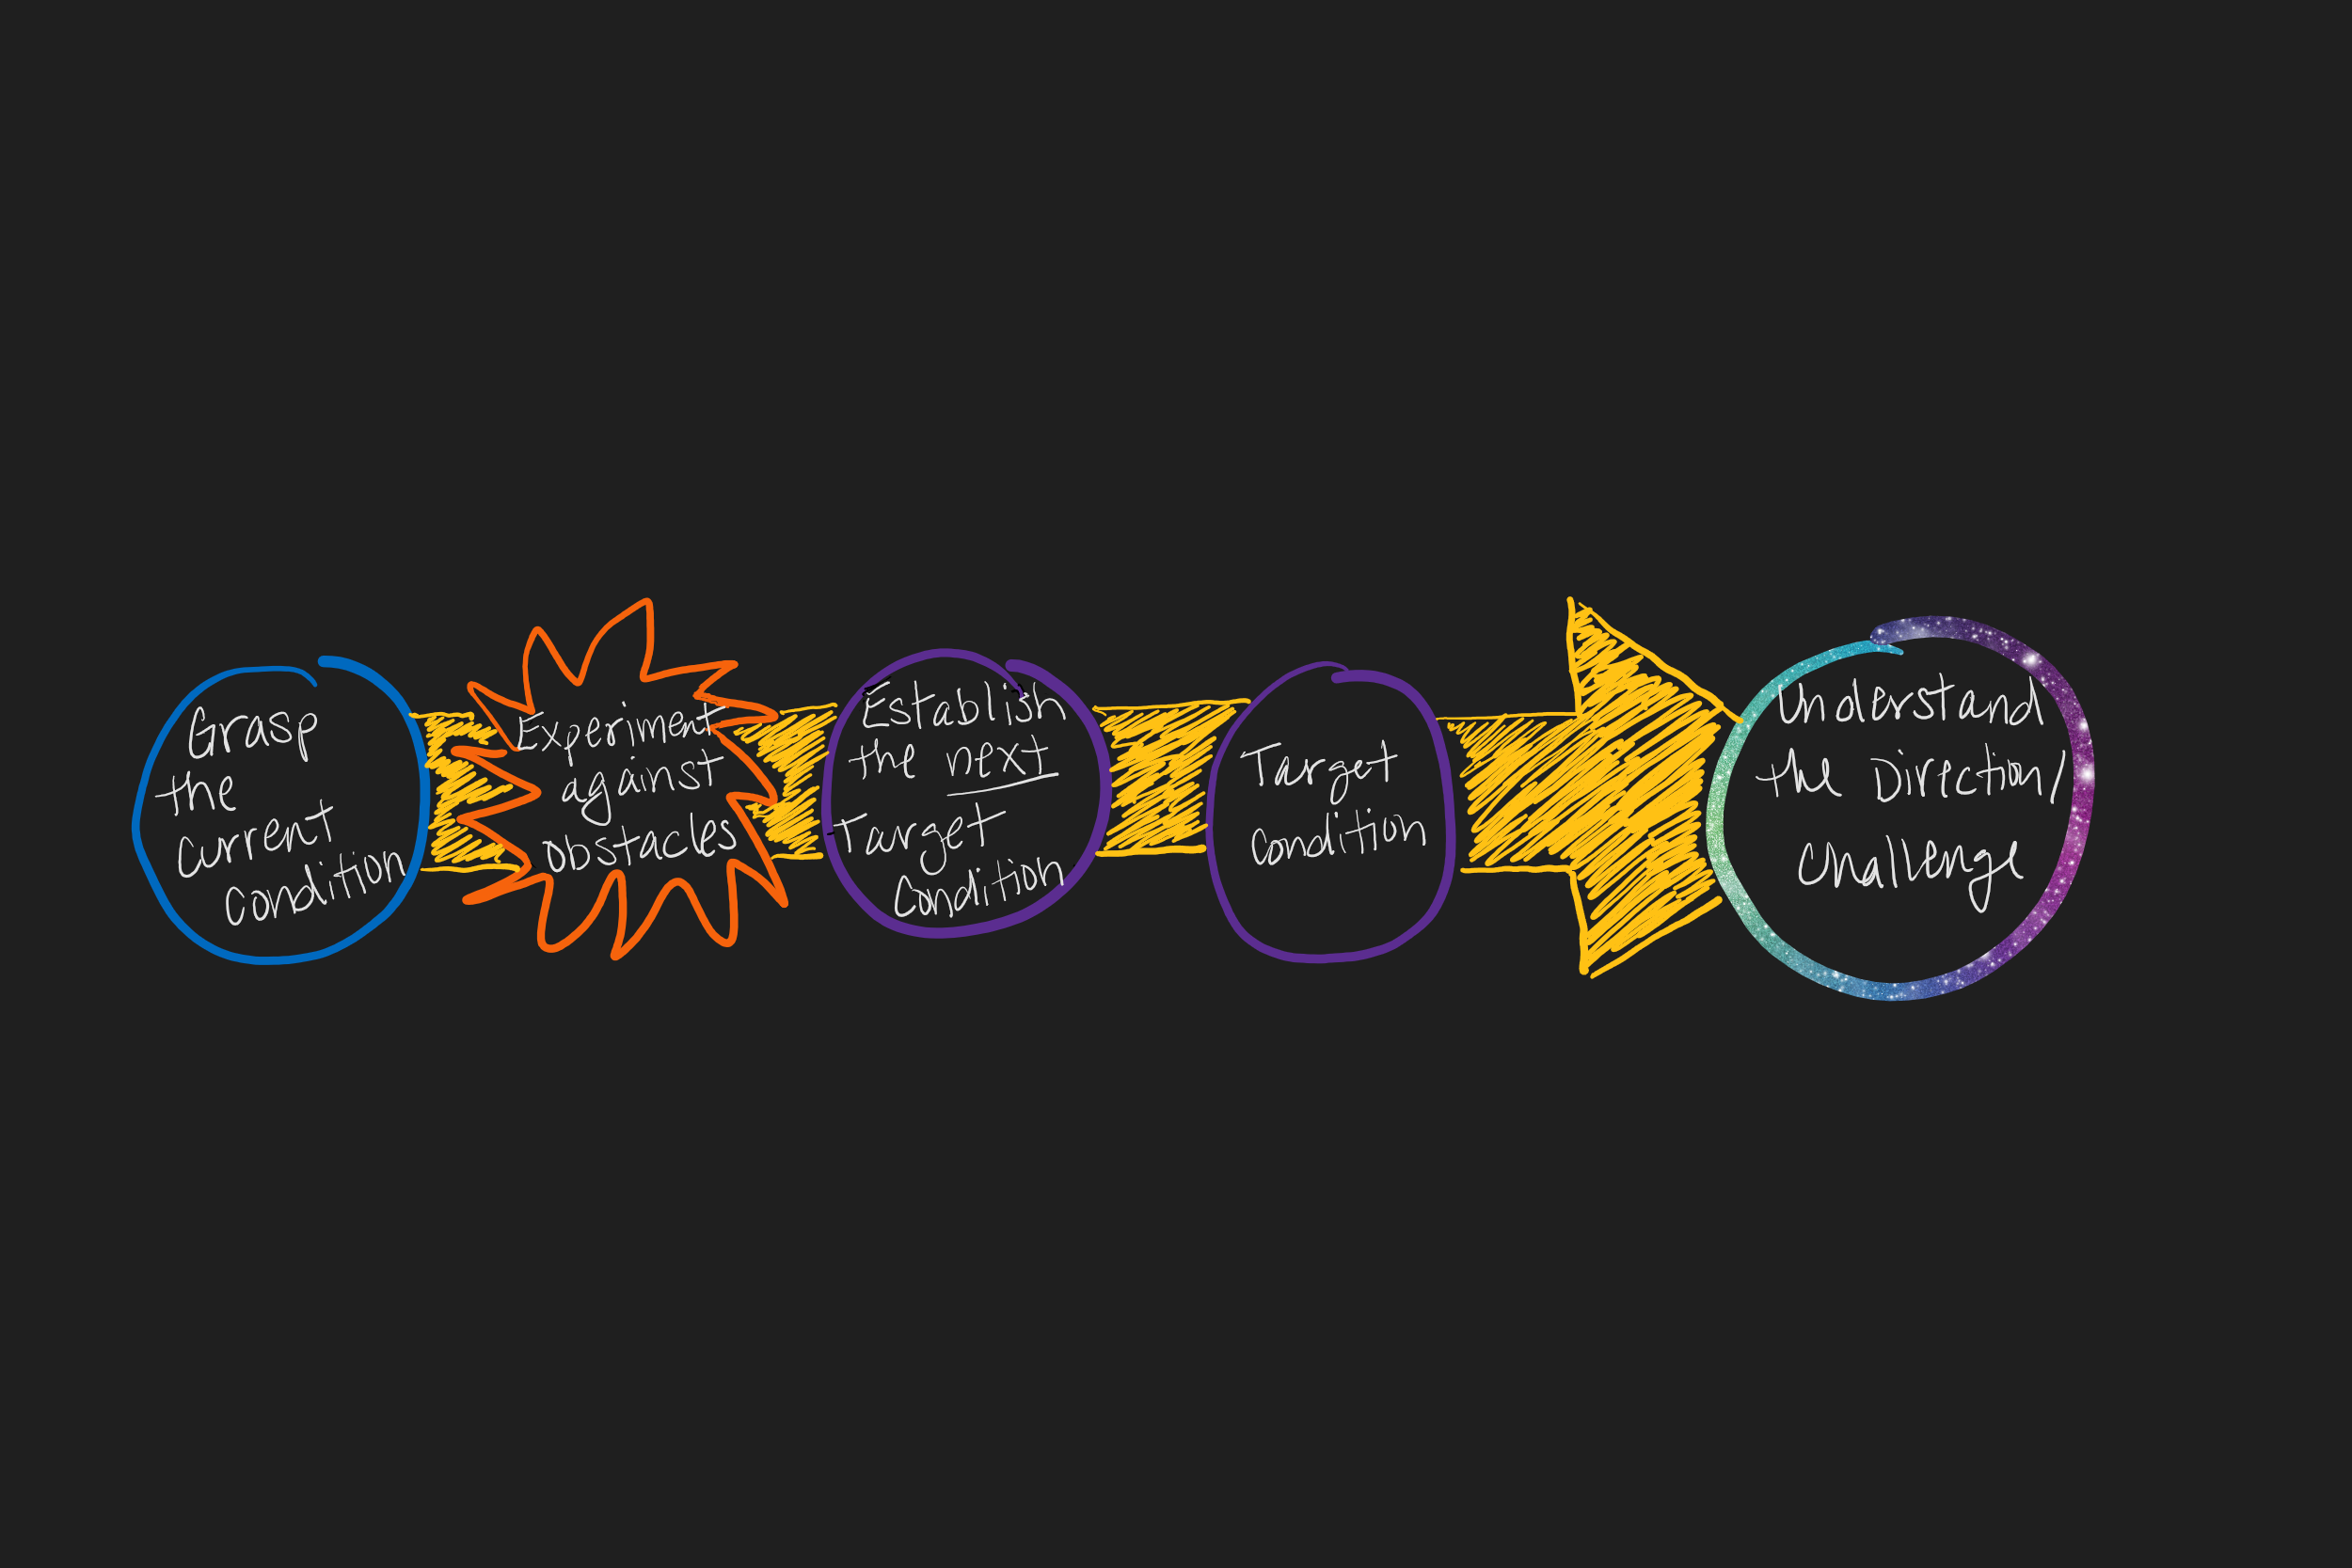 Grasp
the
current
condition
Experiment
against
obstacles
Establish
the next
Target
Condition
Target
Condition
Understand
the Direction/
Challenge